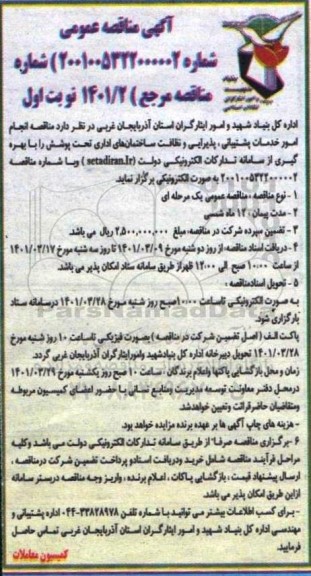 آگهی مناقصه عمومی
شماره ۲۰۰۱۰۰۵۳۲۲۰۰۰۰۰۲) شماره
مناقصه مرجع ) ۱۴۰۱/۲ نوبت اول
اداره کل بنیاد شهید و امور ایثارگران استان آذربایجان غربی در نظر دارد مناقصه انجام
امور خدمات پشتیبانی ، پذیرایی و نظافت ساختمان‌های اداری تحت پوشش را با بهره
گیری از سامانه تدارکات الکترونیکی دولت (setadiran.ir) وبا شماره مناقصه
۲۰۰۱۰۰۵۳۲۲۰۰۰۰۰۲ به صورت الکترونیکی برگزار نماید.
۱ - نوع مناقصه : مناقصه عمومی یک مرحله ای
۲ - مدت پیمان : ۱۲ ماه شمسی
۳ - تضمین سپرده شرکت در مناقصه، مبلغ ۲,۵۰۰,۰۰۰,۰۰۰ ریال می باشد.
۴ - دریافت اسناد مناقصه : از روز دو شنبه مورخ ۱۴۰۱/۰۳/۰۹ تا روز سه شنبه مورخ ۱۴۰۱/۰۳/۱۷
از ساعت ۱۰:۰۰ صبح الی ۱۲:۰۰ ظهر از طریق سامانه ستاد امکان پذیر می باشد.
۵ - تحویل اسناد مناقصه :
به صورت الکترونیکی تا ساعت ۱۰:۰۰ صبح روز شنبه مورخ ۱۴۰۱/۰۳/۲۸ در سامانه ستاد
بارگزاری شود.
پاکت الف ( اصل تضمین شرکت در مناقصه ) بصورت فیزیکی تا ساعت ۱۰ روز شنبه مورخ
۱۴۰۱/۰۳/۲۸ تحویل دبیرخانه اداره کل بنیاد شهید وامور ایثارگران آذربایجان غربی گردد.
زمان و محل بازگشایی پاکتها واعلام برندگان : ساعت ۱۰ صبح روز یکشنبه مورخ ۱۴۰۱/۰۳/۲۹
درمحل دفتر معاونت توسعه مدیریت ومنابع انسانی با حضور اعضای کمیسیون مربوطه
ومتقاضیان حاضر قرائت وتعیین خواهدشد.
- هزینه های چاپ آگهی ها بر عهده برنده مزایده خواهد بود.
۶ - برگزاری مناقصه صرفا" از طریق سامانه تدارکات الکترونیکی دولت می باشد وکلیه
مراحل فرآیند مناقصه شامل خرید ودریافت اسناد و پرداخت تضمین شرکت درمناقصه ،
ارسال پیشنهاد قیمت ، بازگشایی پاکات ، اعلام برنده ، واریز وجه مناقصه دربستر سامانه
ازاین طریق امکان پذیر می باشد.
- برای کسب اطلاعات بیشتر می توانید با شماره تلفن ۳۳۸۲۸۹۷۸-۰۴۴ اداره پشتیبانی و
مهندسی اداره کل بنیاد شهید و امور ایثارگران استان آذربایجان غربی تماس حاصل
فرمایید.
کمیسیون معاملات
ParsNamadData